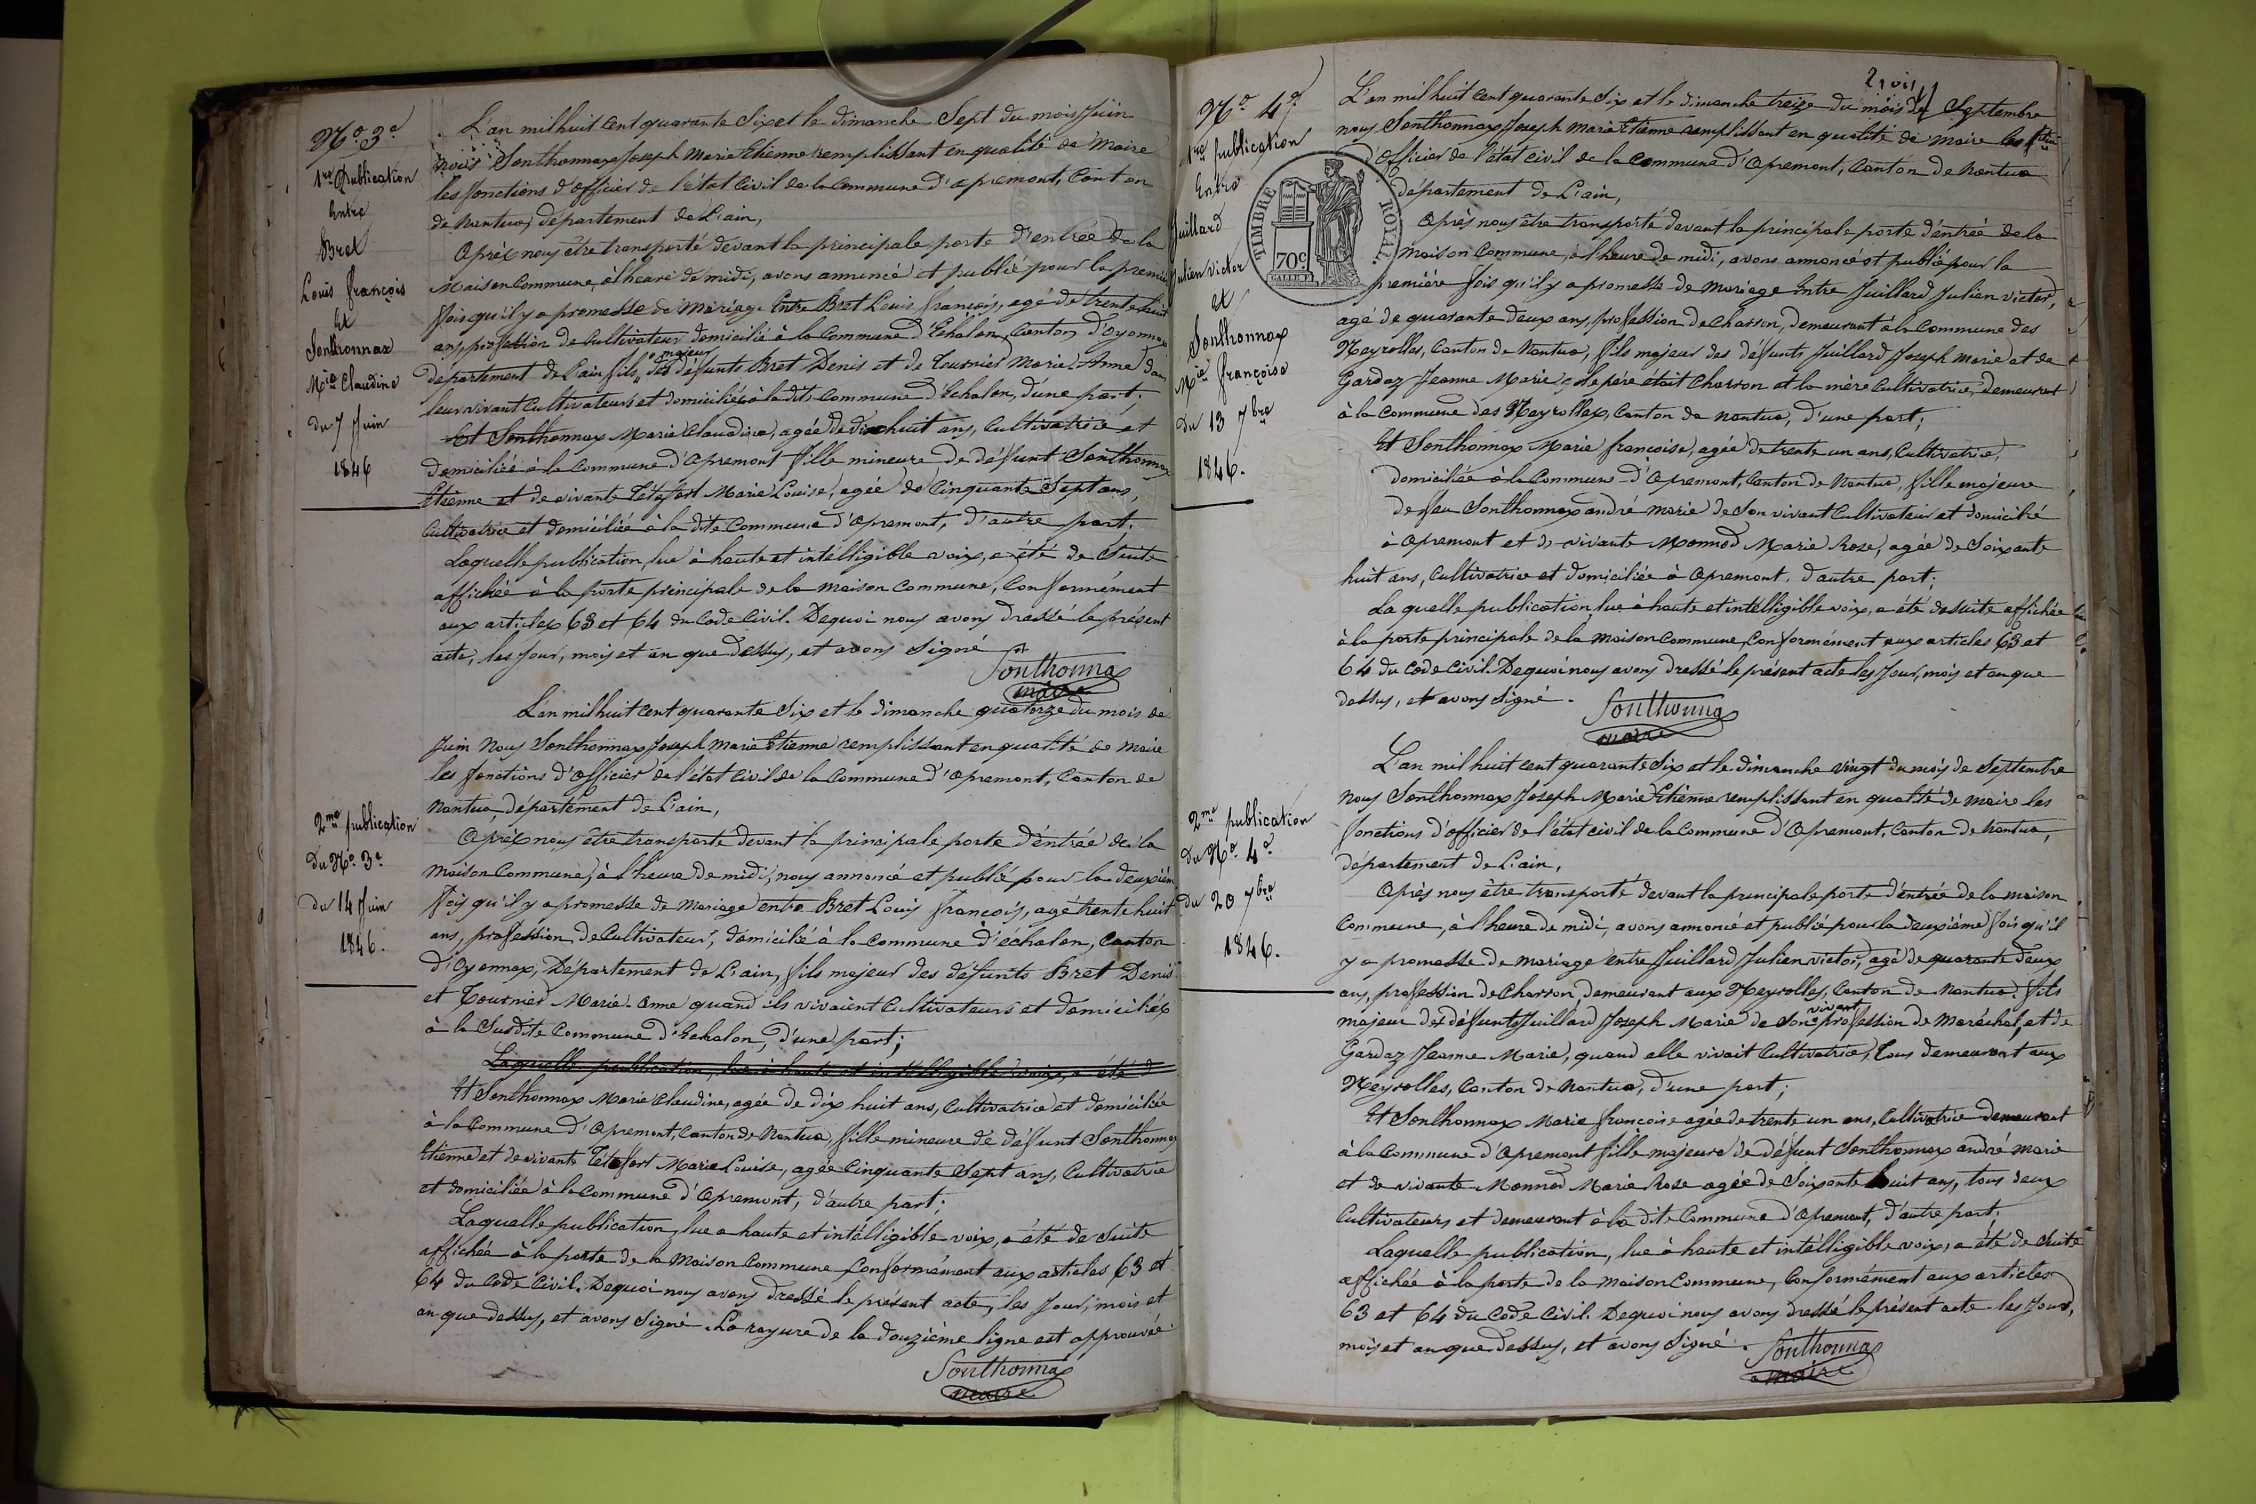 N.o 3.e
1re Publication
Entre
Bret
Louis françois
et
Sonthonnax
Mie Claudine
du 7 Juin
1846
L'an mil huit cent quarante Six et le dimanche Sept du mois Juin
nous Sonthonnax Joseph Marie Etienne remplissant en qualité de Maire
les fonctions d'officier de l'état Civil de la Commune d'apremont, Canton
de Nantua, département de L'ain,
Après nous être transporté devant la principale porte d'entrée de la
Maison Commune, à l'heure de midi, avons annoncé et publié pour la premiere
fois qu'il y a promesse de Mariage Entre Bret Louis françois, agé de trente huit
ans, profession de Cultivateur domicilié à la Commune d'Echalon, Canton d'oyonnax
departement de L'ain fils majeur des défunts Bret Denis et de Tournier Marie Anne dans
leur vivant Cultivateurs et domiciliés à la dite Commune d'Echalon, d'une part.
Et Sonthonnax Marie Claudine, agée de dix huit ans, Cultivatrice et
domiciliée à la Commune d'Apremont fille mineure de défunt Sonthonnax
Etienne et de vivante Tétafort Marie Louise, agée de Cinquante Sept ans,
Cultivatrice et domiciliée à la dite Commune d'apremont, d'autre part.
Laquelle publication, lue à haute et intélligible voix, a été de Suite
affichée à la porte principale de la maison Commune, Conformément
aux articles 63 et 64 du Code Civil. Dequoi nous avons dressé le présent
acte, les Jour, mois et an que dessus, et avons signé
Sonthonnax
maire
2me publication
du N.o 3.e
du 14 Juin
1846.
L'an mil huit cent quarante Six et le dimanche quatorze du mois de
Juin Nous Sonthonnax Joseph Marie Etienne remplissant en qualité de Maire
les fonctions d'officier de l'état Civil de la Commune d'Apremont, Canton de
Nantua, département de L'ain,
Après nous être transporté devant la principale porte d'entrée de la
Maison Commune, à l'heure de midi, nous annoncé et publié pour la deuxième
fois qu'il y a promesse de Mariage entre Bret Louis françois, agé trente huit
ans, profession de Cultivateur, domicilié à la Commune d'échalon, Canton
d'Oyonnax, Département de L'ain, fils majeur des défunts Bret Denis
et Tournier Marie-Anne quand ils vivaient Cultivateurs et domiciliés
à la Susdite Commune d'Echalon, d'une part;
Laquelle publication, lue à haute et intélligible voix, a été d
Et Sonthonnax Marie Claudine, agée de dix huit ans, Cultivatrice et domiciliée
à la Commune d'Apremont, Canton de Nantua, fille mineure de défunt Sonthonnax
Etienne et de vivante Tétafort Marie Louise, agée Cinquante Sept ans, Cultivatrice
et domiciliée à la Commune d'Apremont, d'autre part;
Laquelle publication, lue a haute et intélligible voix, a été de Suite
affichée à la porte de la Maison Commune Conformément aux articles 63 et
64 du Code Civil. Dequoi nous avons dressé le présent acte, les Jour, mois et
an que dessus, et avons Signé. La rayure de la douzième ligne est approuvée
Sonthonnax
maire
N.o 4.e
1re publication
Entre
Juillard
Julien Victor
et
Sonthonnax
Mie françoise
du 13 7bre
1846.
TIMBRE ROYAL.
70c
L'an mil huit cent quarante Six et le dimanche treize du mois de Septembre
nous Sonthonnax Joseph Marie Etienne remplissant en qualité de Maire les fonctions
d'officier de l'état civil de la Commune d'Apremont, Canton de Nantua
département de L'ain,
Après nous être transporté devant la principale porte d'entrée de la
Maison Commune, à l'heure de midi, avons annoncé et publié pour la
première fois qu'il y a promesse de Mariage entre Juillard Julien victor,
agé de quarante deux ans, profession de Charron, demeurant à la Commune des
Neyrolles, Canton de Nantua, fils majeur des défunts Juillard Joseph Marie et de
Gardaz Jeanne Marie, le père était Charron et la mère Cultivatrice, demeurant
à la Commune des Neyrolles, Canton de Nantua, d'une part;
Et Sonthonnax Marie françoise, agée de trente un ans, Cultivatrice,
domiciliée à la Commune d'Apremont, Canton de Nantua, fille majeure
de feu Sonthonnax andré Marie de Son vivant Cultivateur et domicilié
à Apremont et de vivante Monnod Marie Rose, agée de Soixante
huit ans, Cultivatrice et domiciliée à Apremont, d'autre part.
La quelle publication lue à haute et intélligible voix, a été de suite affichée
à la porte principale de la Maison Commune, Conformément aux articles 63 et
64 du Code Civil. Dequoi nous avons dressé le présent acte les Jour, mois et an que
dessus, et avons signé.
Sonthonnax
maire
2me publication
du N.o 4.e
du 20 7bre
1846.
L'an mil huit cent quarante Six et le dimanche vingt du mois de Septembre
Nous Sonthonnax Joseph Marie Etienne remplissant en qualité de Maire les
fonctions d'officier de l'état civil de la Commune d'Apremont, Canton de Nantua,
département de L'ain.
Après nous être transporté devant la principale porte d'entrée de la maison
Commune, à l'heure de midi, avons annoncé et publié pour la deuxième fois qu'il
y a promesse de Mariage entre Juillard Julien victor, agé de quarante deux
ans, profession de Charron, demeurant aux Neyrolles, Canton de Nantua, fils
majeur des défunts Juillard Joseph Marie de Son vivant profession de Maréchal, et de
Gardaz Jeanne Marie, quand elle vivait Cultivatrice, tous demeurant aux
Neyrolles, Canton de Nantua, d'une part;
Et Sonthonnax Marie françoise agée de trente un ans, Cultivatrice demeurant
à la Commune d'Apremont fille majeure de défunt Sonthonnax andré Marie
et de vivante Monnod Marie Rose agée de Soixante huit ans, tous deux
Cultivateurs et demeurant à la dite Commune d'Apremont, d'autre part.
Laquelle publication, lue à haute et intélligible voix, a été de Suite
affichée à la porte de la maison Commune, Conformément aux articles
63 et 64 du Code Civil. Dequoi nous avons dressé le présent acte les Jour,
mois et an que dessus, et avons Signé.
Sonthonnax
maire